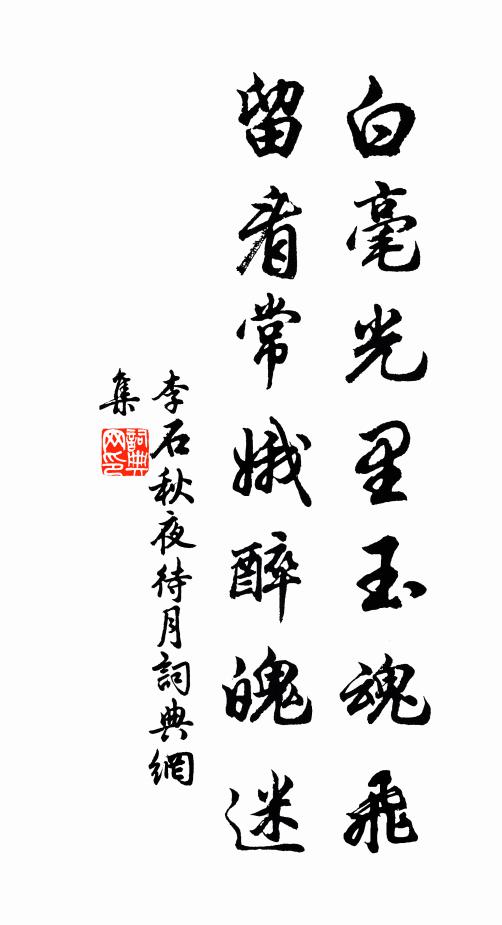 白毫光里玉魂飛
留看常娥醉魄迷
李石秋夜待月詞典網
集
詞典
网印